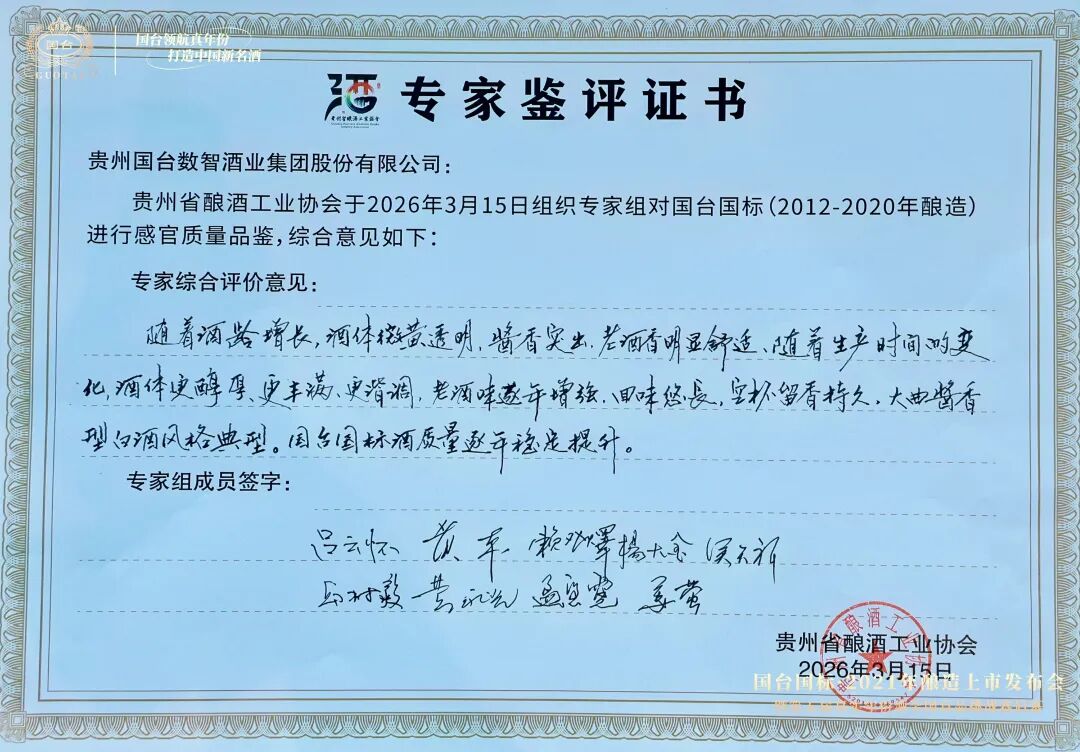 国台
GUOTAI
国台领航真年份
打造中国新名酒
酒
贵州省酿酒工业协会
专家鉴评证书
贵州国台数智酒业集团股份有限公司：
贵州省酿酒工业协会于2026年3月15日组织专家组对国台国标（2012-2020年酿造）
进行感官质量品鉴，综合意见如下：
专家综合评价意见：
随着酒龄增长，酒体微黄透明、醬香突出、老酒香明显舒适、随着生产时间的变
化，酒体更醇厚、更丰满、更谐调，老酒味逐年增强、回味悠長，空杯留香持久、大曲醬香
型白酒风格典型。国台国标酒质量逐年稳定提升。
专家组成员签字：
吕云怀 黄平 杨大金
贵州省酿酒工业协会
2026年3月15日
国台国标·2021年酿造上市发布会